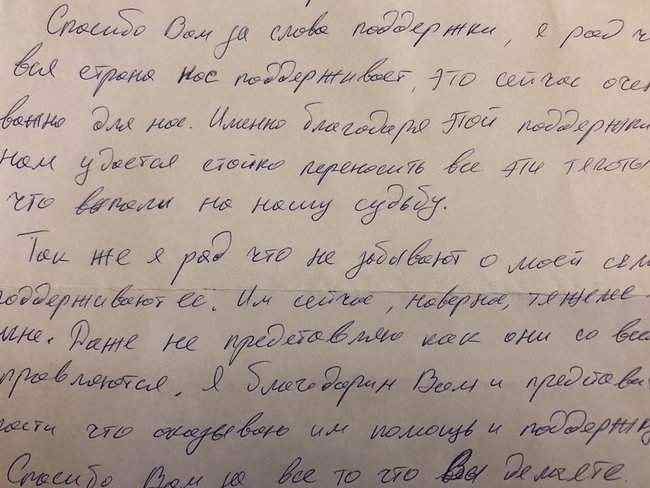 Спасибо Вам за слова поддержки, я рад ч
вся страна нас поддерживает, это сейчас очен
важно для нас. Именно благодаря этой поддержки
нам удается стойко переносить все эти тяготы
что выпали на нашу судьбу.
Так же я рад что не забывают о моей сем
поддерживают ее. Им сейчас, наверна, тяжелее
мне. Даже не представляю как они со все
правляются. Я благодарин Вам и представи
ости что оказываю им помощь и поддержку
Спасибо Вам за все то что Вы делаете.